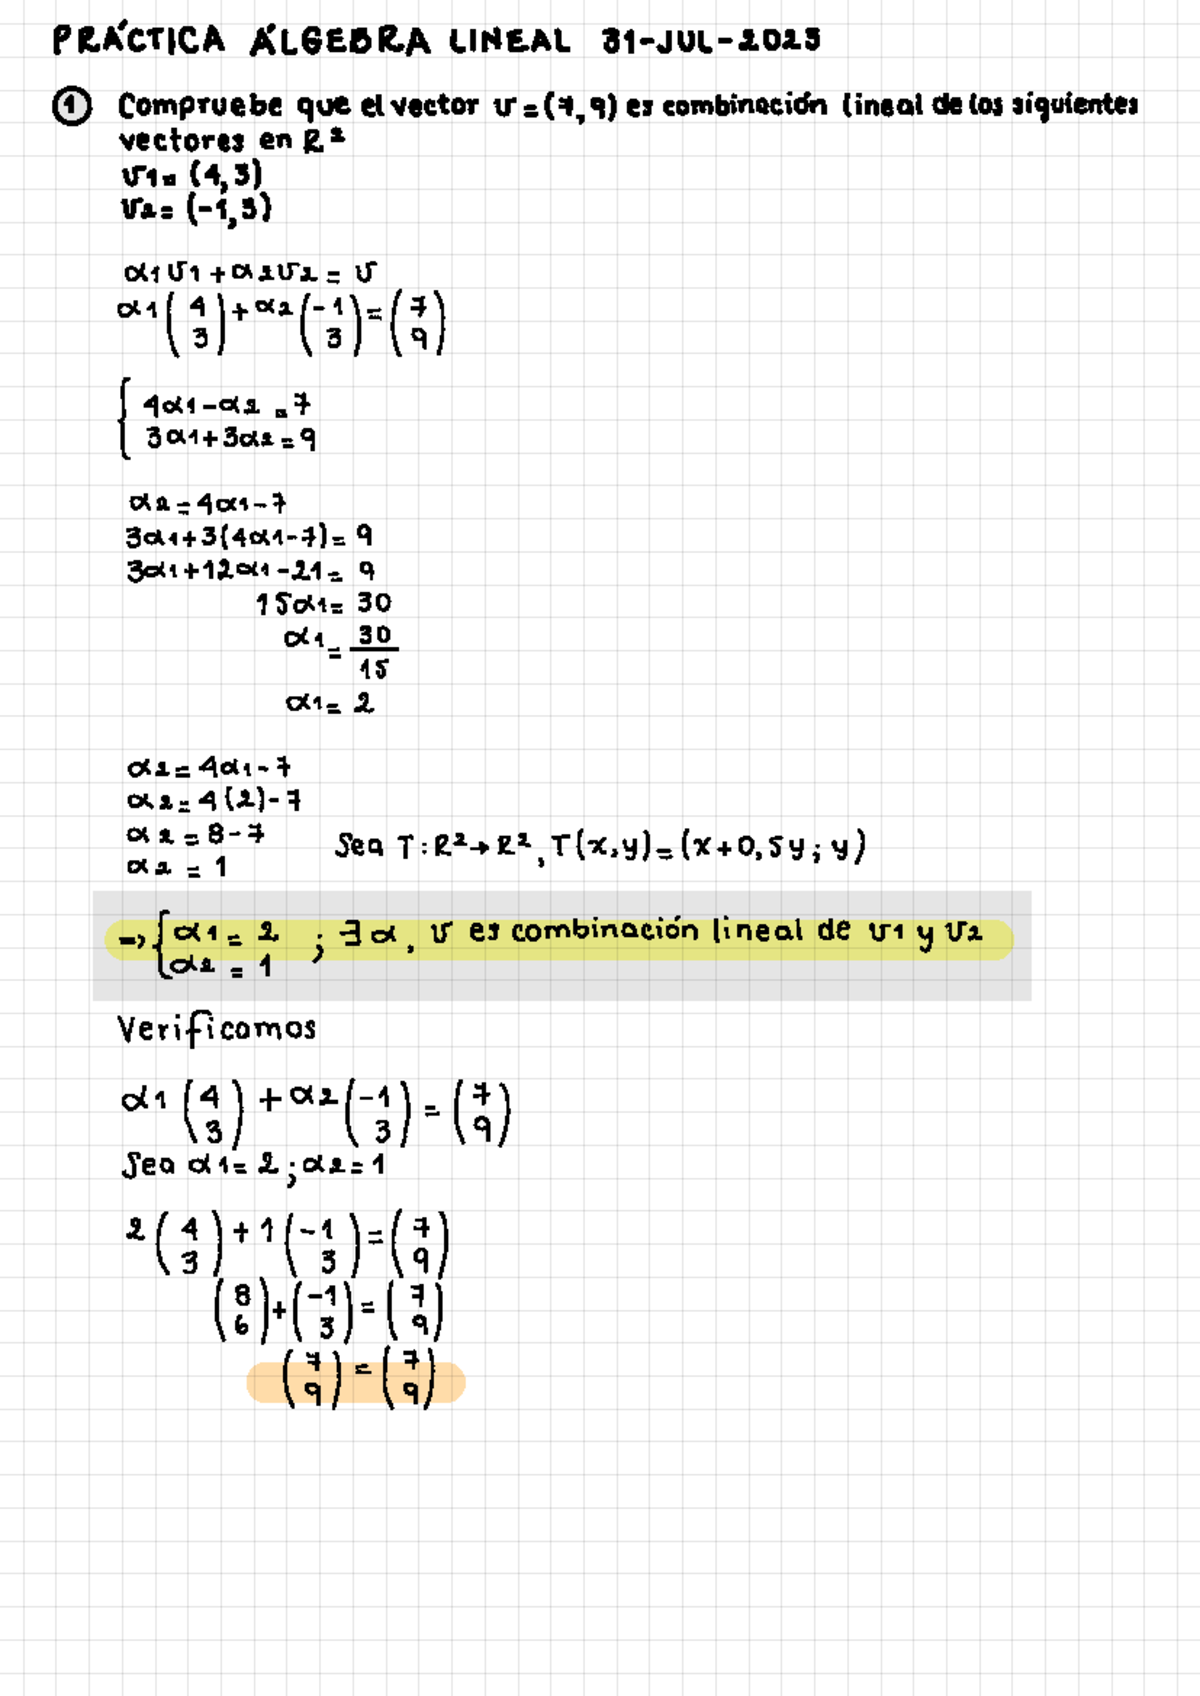 PRÁCTICA ÁLGEBRA LINEAL 31-JUL-2023
① Compruebe que el vector v=(7,9) es combinación lineal de los siguientes
vectores en R²
v1= (4,3)
v2= (-1,3)
α1v1+α2v2= v
α1(4 3)+α2(-1 3)=(7 9)
{4α1-α2=7
3α1+3α2=9
α2=4α1-7
3α1+3(4α1-7)= 9
3α1+12α1-21= 9
15α1= 30
α1= 30/15
α1= 2
α2= 4α1-7
α2= 4(2)-7
α2 = 8-7
α2 = 1
Sea T:R²→R², T(x,y)=(x+0,5y; y)
=> {α1= 2 ; ∃α, v es combinación lineal de v1 y v2
α2 = 1
Verificamos
α1(4 3)+α2(-1 3)=(7 9)
Sea α1= 2; α2= 1
2(4 3)+1(-1 3)=(7 9)
(8 6)+(-1 3)=(7 9)
(7 9)=(7 9)